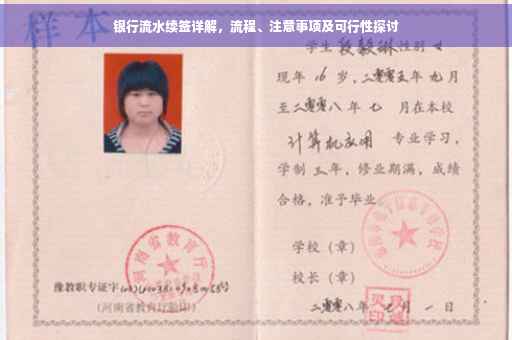 银行流水续签详解，流程、注意事项及可行性探讨
样本
学生段毅琳性别女
现年16岁，二零零五年九月
至二零零八年七月在本校
计算机应用 专业学习，
学制三年，修业期满，成绩
合格，准予毕业
学校（章）
校长（章）
二零零八年七月一日
河南省教育厅
豫教职专证字
（河南省教育厅验印）